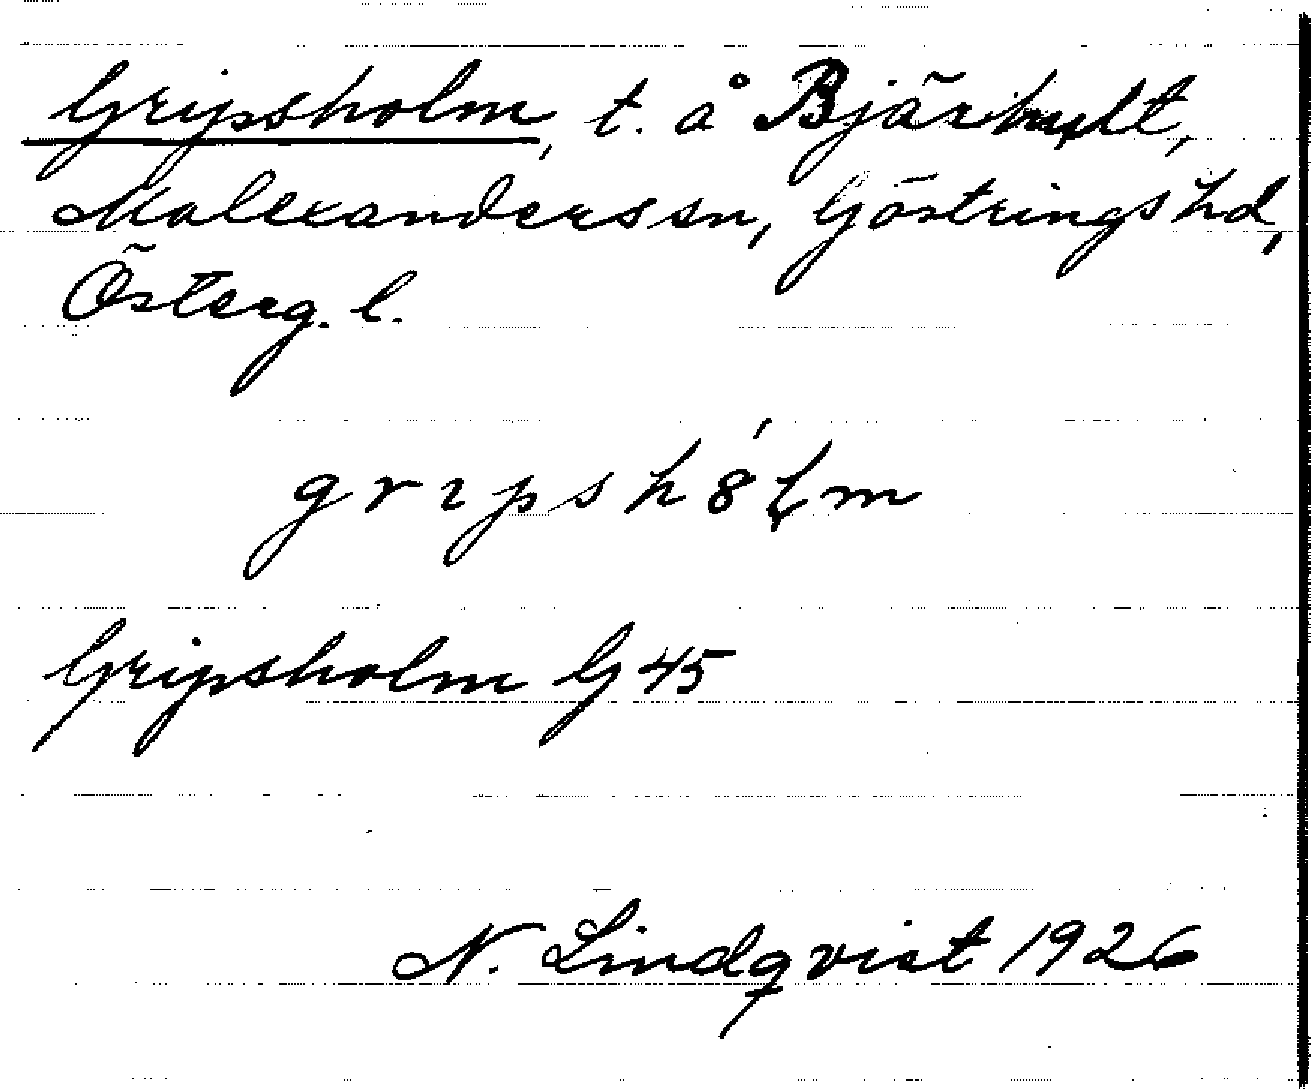 Gripsholm, t. å Bjärhult,
Malexanders sn, Göstrings hd,
Österg. l.
gripshólm
Gripsholm G 45
N. Lindqvist 1926